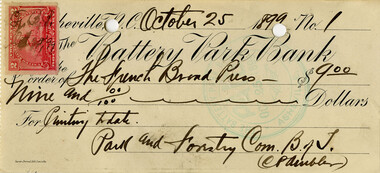 heville, N.C. October 25 1899 No. 1
The Battery Park Bank
order of The French Broad Press — $9.00
Nine and 00/100 Dollars
For Printing to date
Park and Forestry Com. B of T.